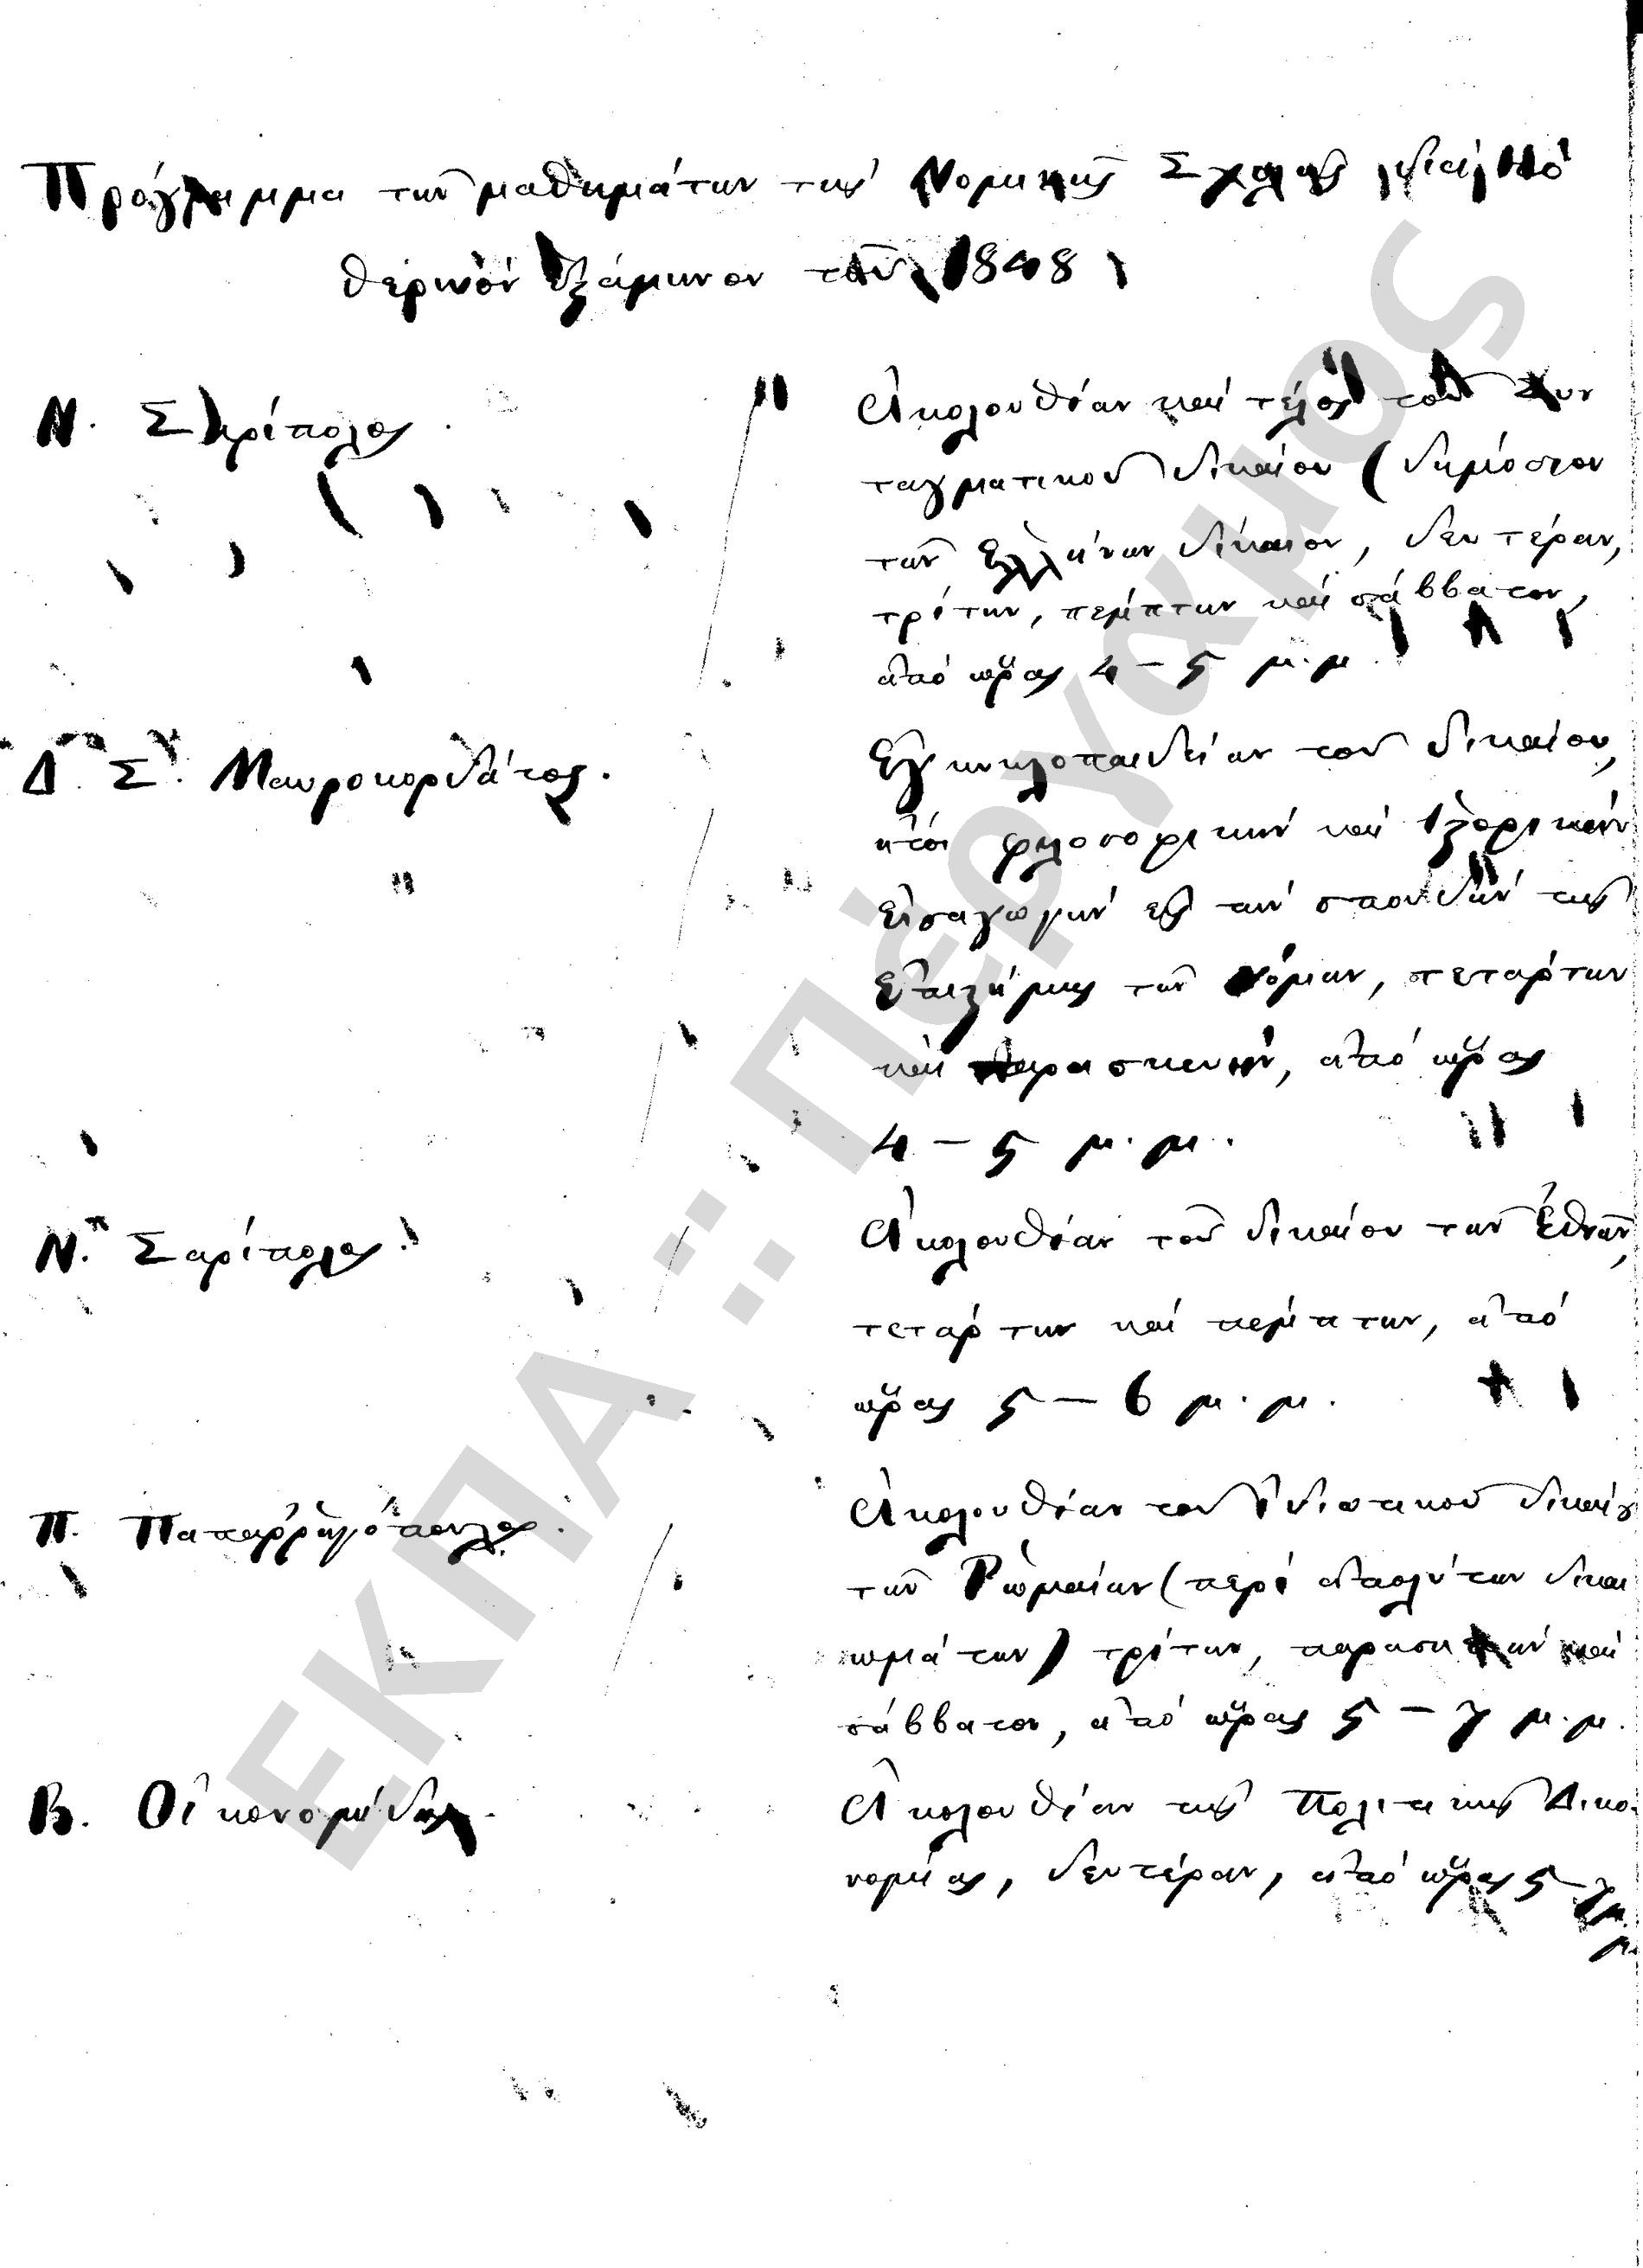 Πρόγραμμα τῶν μαθημάτων τῆς Νομικῆς Σχολῆς διὰ τὸ
θερινὸν ἑξάμηνον τοῦ 1848
Ν. Σαρίπολος.
Ἀκολουθίαν καὶ τέλος τοῦ Συν
ταγματικοῦ δικαίου (δημόσιον
τῶν Ἑλλήνων δίκαιον, δευτέραν,
τρίτην, πέμπτην καὶ σάββατον,
ἀπὸ ὥρας 4 – 5 μ.μ.
Δ. Σ. Μαυροκορδάτος.
Ἐγκυκλοπαιδείαν τοῦ δικαίου,
ἤτοι φιλοσοφικὴν καὶ ἱστορικὴν
εἰσαγωγὴν εἰς τὴν σπουδὴν τῆς
ἐπιστήμης τῶν νόμων, τετάρτην
καὶ παρασκευὴν, ἀπὸ ὥρας
4 – 5 μ.μ.
Ν. Σαρίπολος.
Ἀκολουθίαν τοῦ δικαίου τῶν Ἐθνῶν,
τετάρτην καὶ πέμπτην, ἀπὸ
ὥρας 5 – 6 μ.μ.
Π. Παπαρρηγόπουλος.
Ἀκολουθίαν τοῦ ἰδιωτικοῦ δικαίου
τῶν Ῥωμαίων (περὶ ἀπολύτων δικαι
ωμάτων) τρίτην, παρασκευὴν καὶ
σάββατον, ἀπὸ ὥρας 5 – 7 μ.μ.
Β. Οἰκονομίδης.
Ἀκολουθίαν τῆς Πολιτικῆς Δικο-
νομίας, δευτέραν, ἀπὸ ὥρας 5 – 7 μ.
μ.
ΕΚΠΑ :: Πέργαμος